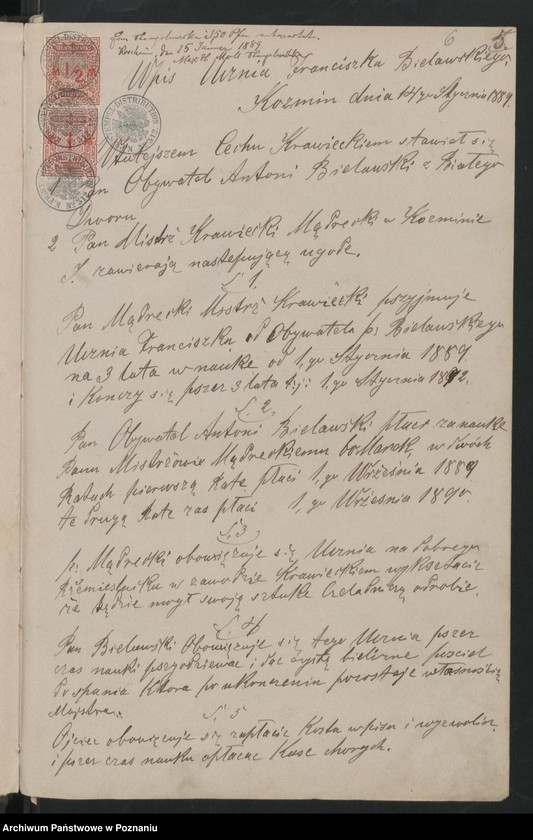 6 5.
den 15 Januar 1889
Wpis Ucznia Franciszka Bielawskiego
Kozmin dnia 14/go Stycznia 1889.
Tutejszem Cechu Krawieckiem stawiel się
Pan Obywatel Antoni Bielawski z Białego
Dworu
2 Pan Mistrz Krawiecki Mądrecki w Kozminie
I. zawierają następującą ugode.
§. 1.
Pan Mądrecki Mistrz Krawiecki przyjmuje
Ucznia Franciszka od Obywatela p: Bielawskiego
na 3 lata w naukę od 1,go Stycznia 1889
i Konczy się pszer 3 lata t.j: 1,go Stycznia 1892.
§. 2
Pan Obywatel Antoni Bielawski płaci za nauke
Panu Mistrzowie Mądreckiemu 60 Marek, w dwóch
Ratach pierwszą Rate płaci 1,go Września 1889
te Drugą Rate zas płaci 1,go Września 1890.
§. 3
p: Mądrecki obowięzuje się Ucznia na Dobrego
Rzemieslnika w zawodzie Krawieckiem wykształcic
że będzie mógł swoją sztuke Czeladniczą odrobic.
§. 4
Pan Bielawski Obowięzuje się tego Ucznia pszer
czas nauki pszyodziewac i dać czystą bielizne posciel
Do spania Ktora po ukonczeniu pozostaje własnością
Majstra.
§. 5
Ojciec obowięzuje się zapłacic Koszta wpisu i wyzwolin
i pszer czas nauku opłacac Kase chorych.
Archiwum Państwowe w Poznaniu